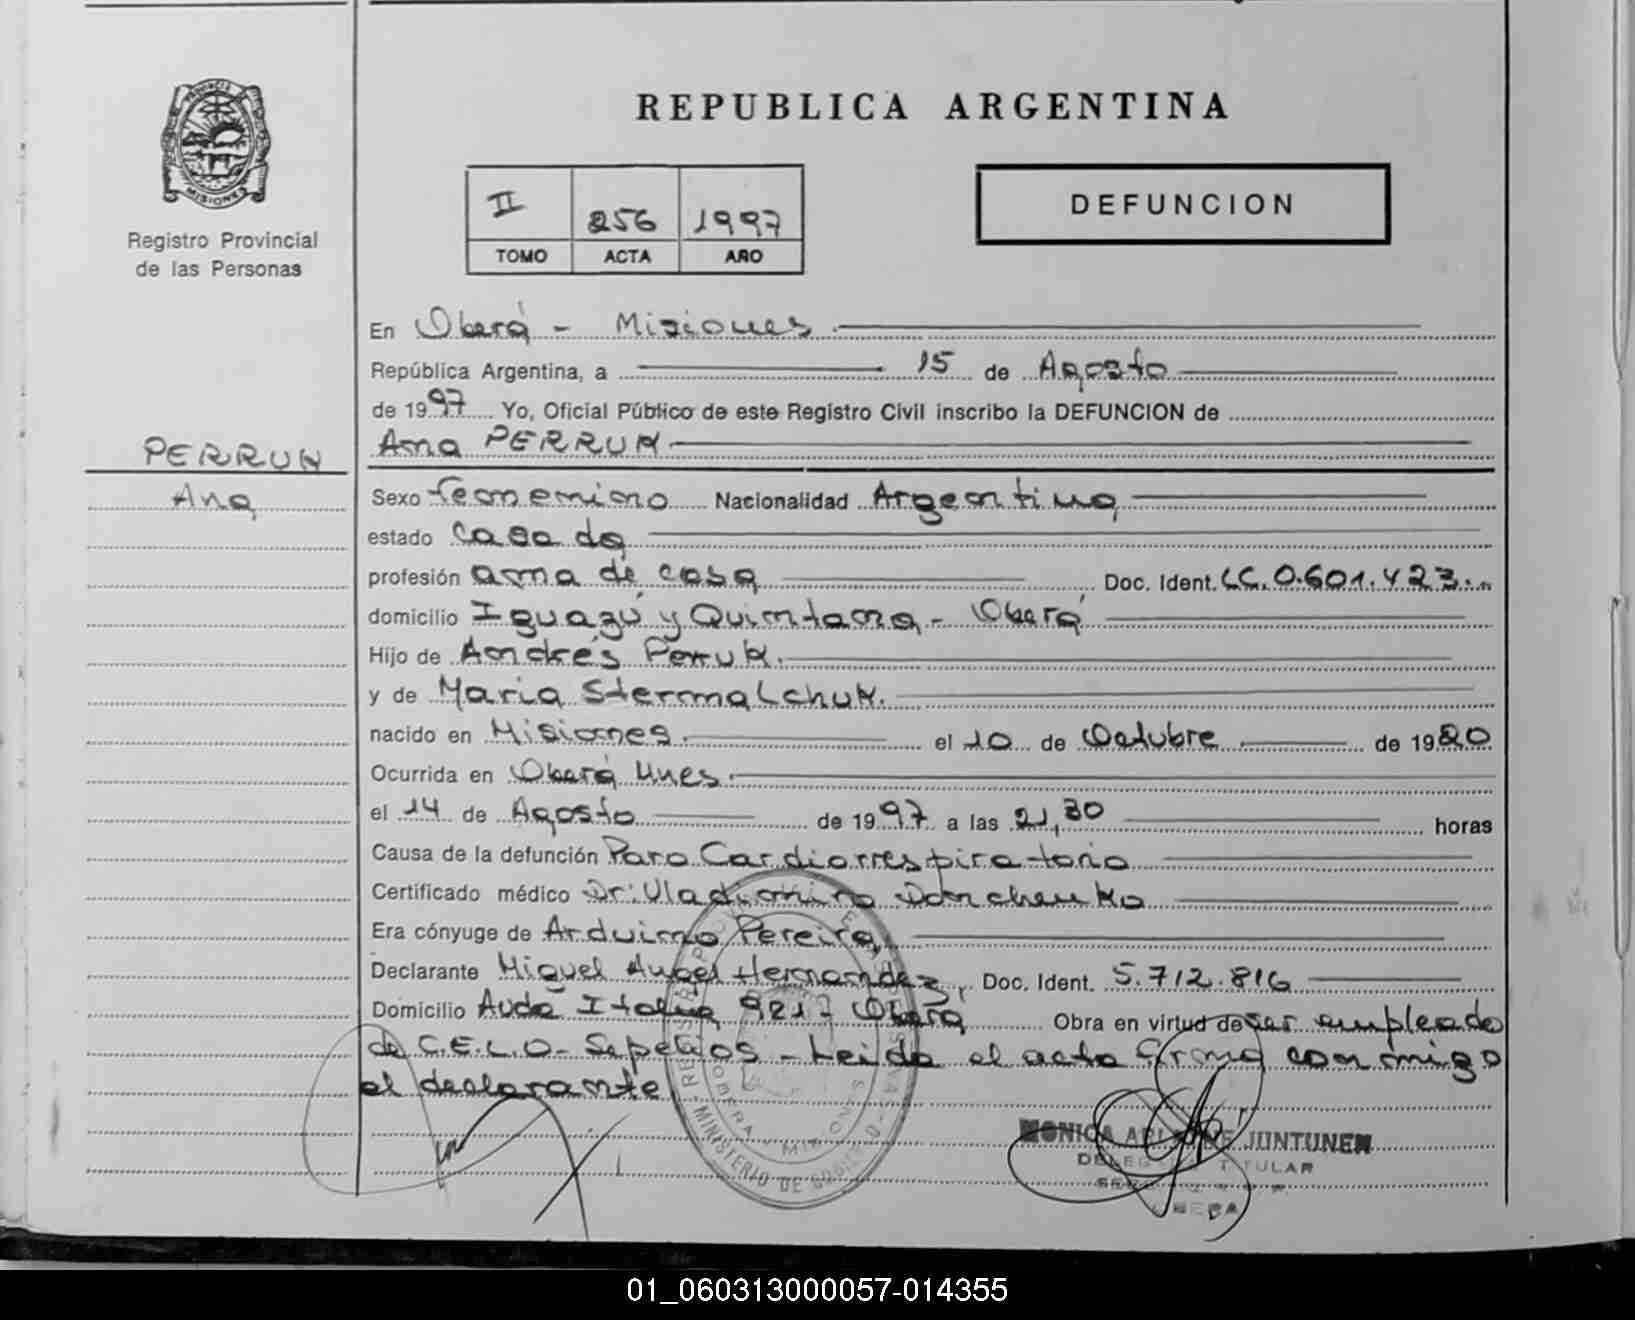 REPUBLICA ARGENTINA
PROVINCIA DE
MISIONES
Registro Provincial
de las Personas
II 256 1997
TOMO ACTA AÑO
DEFUNCION
En Oberá - Misiones
República Argentina, a 15 de Agosto
de 1997 Yo, Oficial Público de este Registro Civil inscribo la DEFUNCION de
Ana PERRUK
PERRUK
Ana
Sexo femenino Nacionalidad Argentina
estado casada
profesión ama de casa Doc. Ident. LC. 0.601.423.
domicilio Iguazú y Quintana - Oberá
Hijo de Andrés Perruk.
y de Maria Stermalchuk.
nacido en Misiones. el 10 de Octubre de 1920
Ocurrida en Oberá Mnes.
el 14 de Agosto de 1997 a las 21,30 horas
Causa de la defunción Paro Cardiorrespiratorio
Certificado médico Dr: Uladimiro Danchenko
Era cónyuge de Arduino Pereira,
Declarante Miguel Angel Hernandez, Doc. Ident. 5.712.816
Domicilio Avda Italia 921 - Oberá Obra en virtud de ser empleado
de C.E.L.O - Sepelios - Leida el acta firma conmigo
el declarante
MINISTERIO DE GOBIERNO
OBERA MISIONES
MONICA JUNTUNEN
DELEGADA TITULAR
01_060313000057-014355